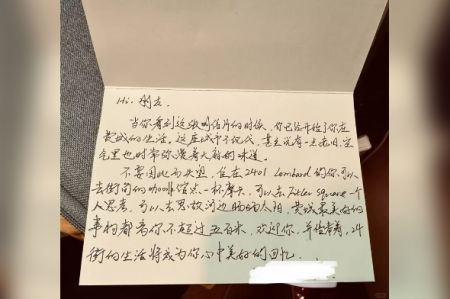 Hi. 朋友.
当你看到这张明信片的时候，你已经开始了你在
费城的生活。这座城市不现代，甚至还有一点点旧，空
气里也时常弥漫着大麻的味道。
不要因此而失望，住在2401 Lombard的你，可以
去街角的咖啡馆点一杯摩卡，可以去Fitler square一个
人思考，可以去思故河边晒晒太阳，费城最美好的
事物都离你不超过五百米，欢迎你，并信着，24
街的生活将成为你心中美好的回忆.